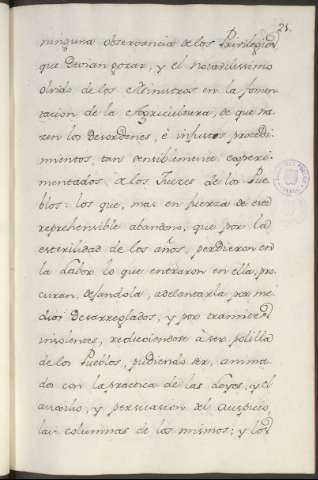 25.
ninguna observancia de los Privilegios,
que devian gozar, y el notabilissimo
olvido de los Ministros en la fomen-
tacion de la Agricultura, de que na-
zen los desordenes, è injustos procedi-
mientos, tan sensiblemente experi-
mentados, de los Juezes de los Pue-
blos: los que, mas en fuerza de este
reprehensible abandono, que por la
esterilidad de los años, perdieron en
la Labor lo que entraron en ella, pro-
curan, dejandola, adelantarla por me-
dios desarreglados, y por
reduciendose à ser polilla
de los Pueblos, pudiendo ser, anima-
dos con la practica de las Leyes, y el
auxilio, y persuacion del Auspicio,
las columnas de los mismos; y los